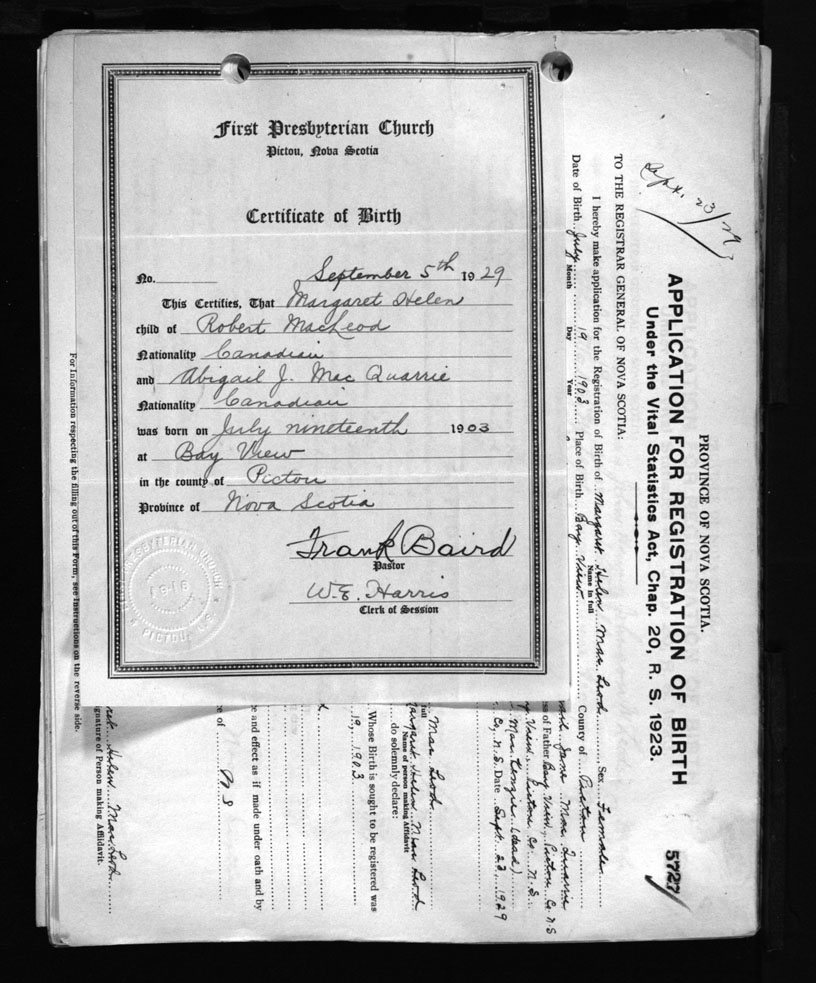 First Presbyterian Church
Pictou, Nova Scotia
Certificate of Birth
No. September 5th 1929
This Certifies, That Margaret Helen
child of Robert MacLeod
Nationality Canadian
and Abigail J. Mac Quarrie
Nationality Canadian
was born on July nineteenth 1903
at Bay View
in the county of Pictou
Province of Nova Scotia
Frank Baird
Pastor
W. E. Harris
Clerk of Session
PRESBYTERIAN CHURCH
1918
PICTOU, N.S.
Sept. 23/29
PROVINCE OF NOVA SCOTIA.
APPLICATION FOR REGISTRATION OF BIRTH 5727
Under the Vital Statistics Act, Chap. 20, R. S. 1923.
TO THE REGISTRAR GENERAL OF NOVA SCOTIA:
I hereby make application for the Registration of Birth of Margaret Helen Mac Leod Sex Female
Name in full
Date of Birth July 19 1903 Place of Birth Bay View County of Pictou
Month Day Year
Jane Mac Quarrie
ss of Father Bay View, Pictou Co. N.S
View, Pictou Co. N.S.
Mac Kenzie (dead)
Co, N.S. Date Sept. 23, 1929
Mac Leod
full
Margaret Helen Mac Leod
Name of person making Affidavit
do solemnly declare:
Whose Birth is sought to be registered was
19, 1903
e and effect as if made under oath and by
e of N S
ret Helen Mac Leod
gnature of Person making Affidavit.
For Information respecting the filling out of this Form, see Instructions on the reverse side.